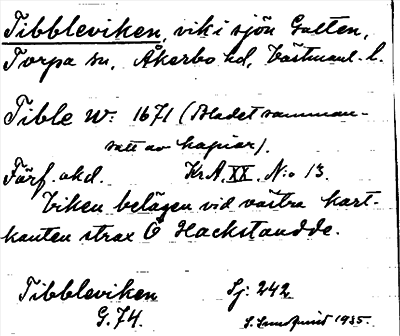 Tibbleviken, vik i sjön Galten,
Torpa sn, Åkerbo hd, Västmanl. l.
Tible W: 1671 (Bladet samman-
satt av kopior).
Färf. okd. KrA XX N:o 13.
Viken belägen vid västra kart-
kanten strax Ö Hackstaudde.
Tibbleviken Sj: 242
G. 74. S. Lundquist 1935.